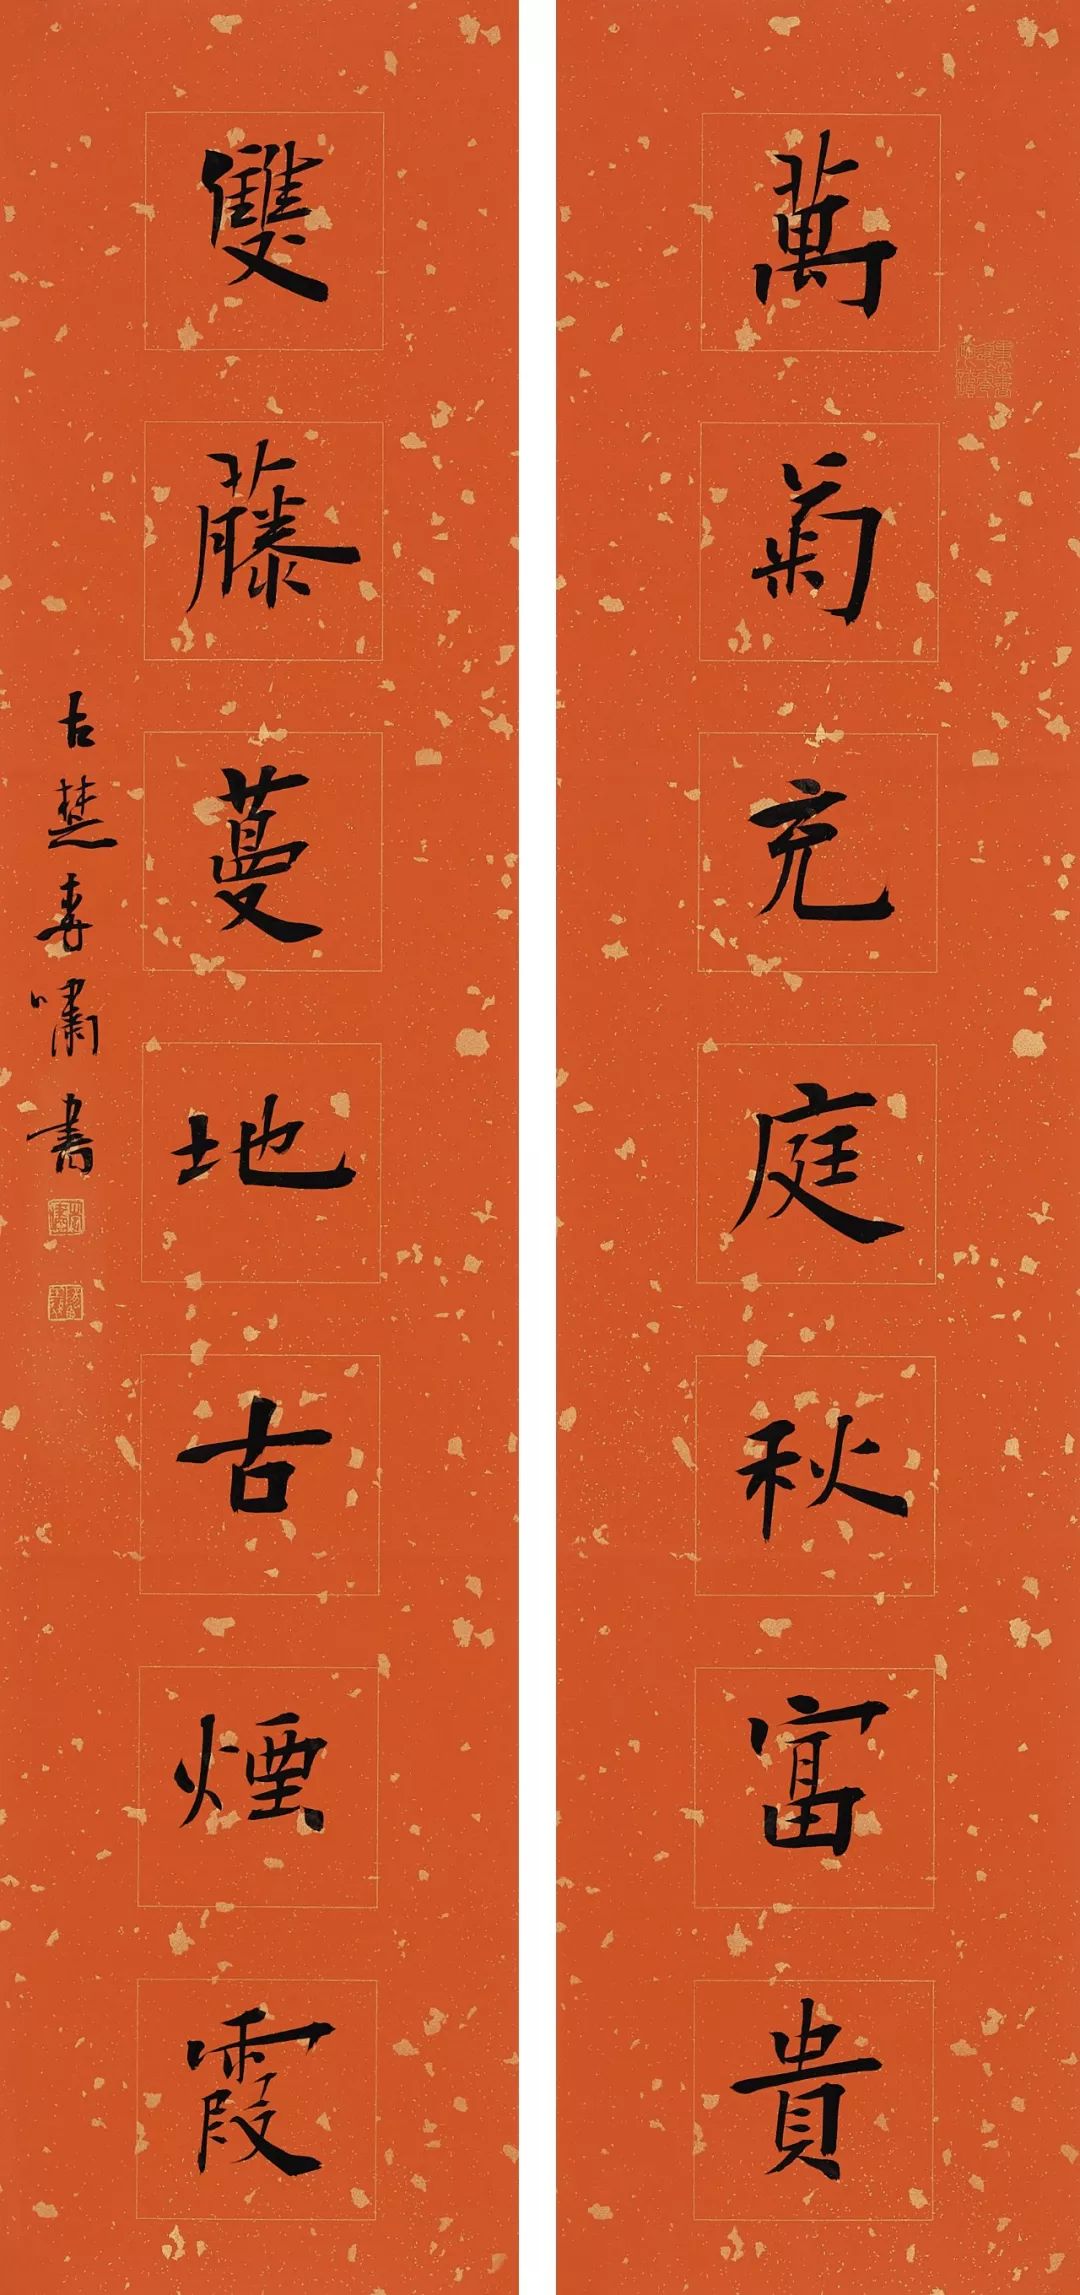 萬菊充庭秋富貴
雙藤蔓地古煙霞
古楚春嘯書